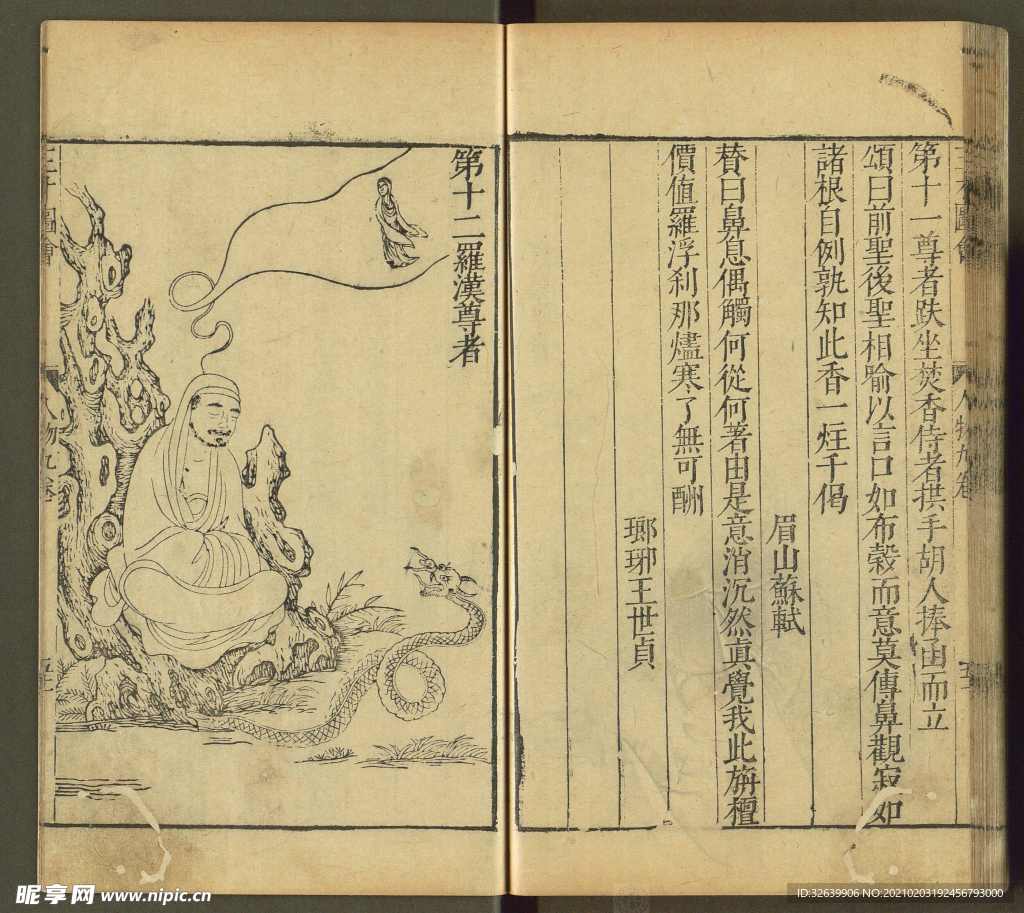 三才圖會
人物九卷
第十一尊者趺坐焚香侍者拱手胡人捧函而立
頌曰前聖後聖相喻以言口如布穀而意莫傳鼻觀寂如
諸根自例孰知此香一炷千偈
眉山蘇軾
賛曰鼻息偶觸何從何著由是意消沉然真覺我此旃檀
價值羅浮刹那燼寒了無可酬
瑯琊王世貞
第十二羅漢尊者
昵享网 www.nipic.cn
ID:32639906 NO:20210203192456793000